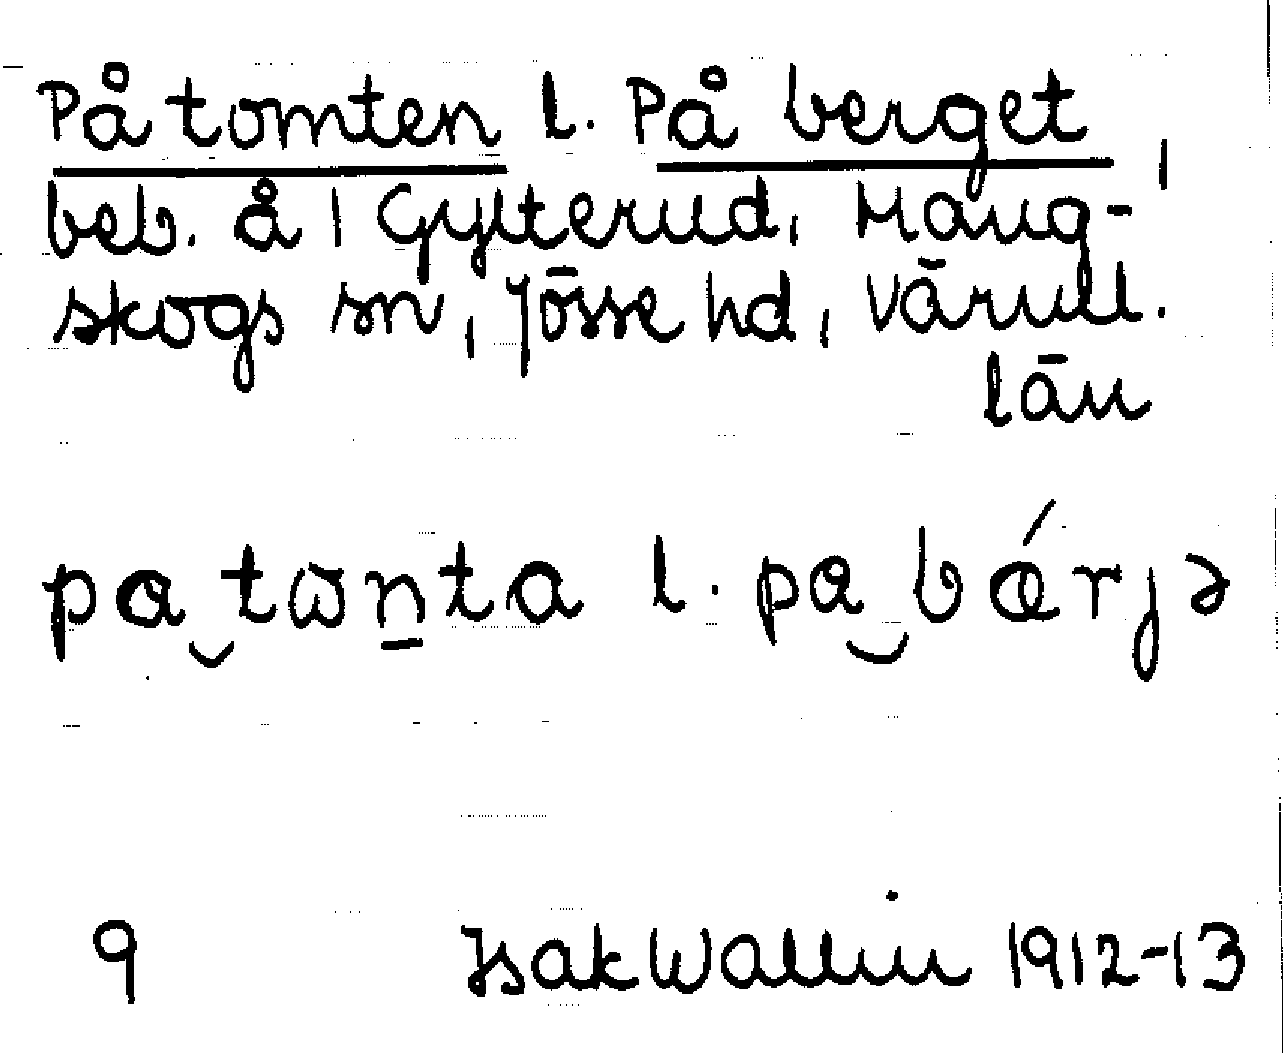 På tomten l. På berget,
beb. å 1 Gylterud, Mang-
skogs sn, Jösse hd, Värml.
län
pa‿tωn̲ta l. pa‿bǽrjə
9 Isak Wallin 1912-13